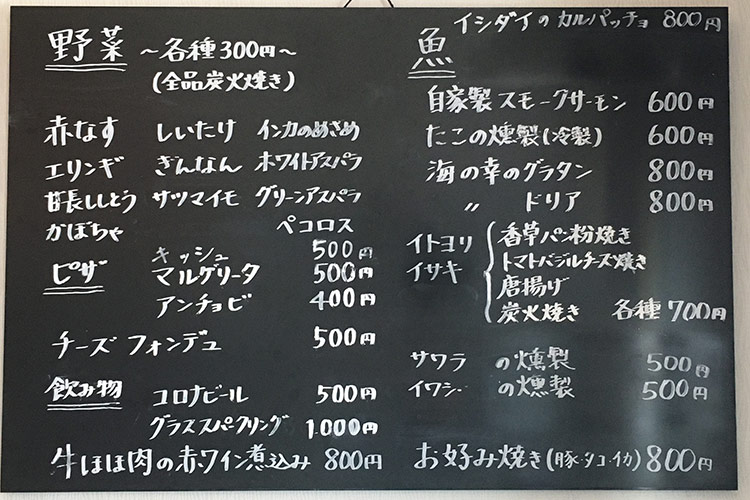 野菜 ～各種300円～
(全品炭火焼き)
赤なす しいたけ インカのめざめ
エリンギ ぎんなん ホワイトアスパラ
甘長ししとう サツマイモ グリーンアスパラ
かぼちゃ ペコロス
キッシュ 500円
ピザ マルゲリータ 500円
アンチョビ 400円
チーズフォンデュ 500円
飲み物 コロナビール 500円
グラススパークリング 1,000円
牛ほほ肉の赤ワイン煮込み 800円
魚 イシダイのカルパッチョ 800円
自家製スモークサーモン 600円
たこの燻製(冷製) 600円
海の幸のグラタン 800円
〃 ドリア 800円
イトヨリ 香草パン粉焼き
イサキ トマトバジルチーズ焼き
唐揚げ
炭火焼き 各種700円
サワラ の燻製 500円
イワシ の燻製 500円
お好み焼き(豚・タコ・イカ) 800円